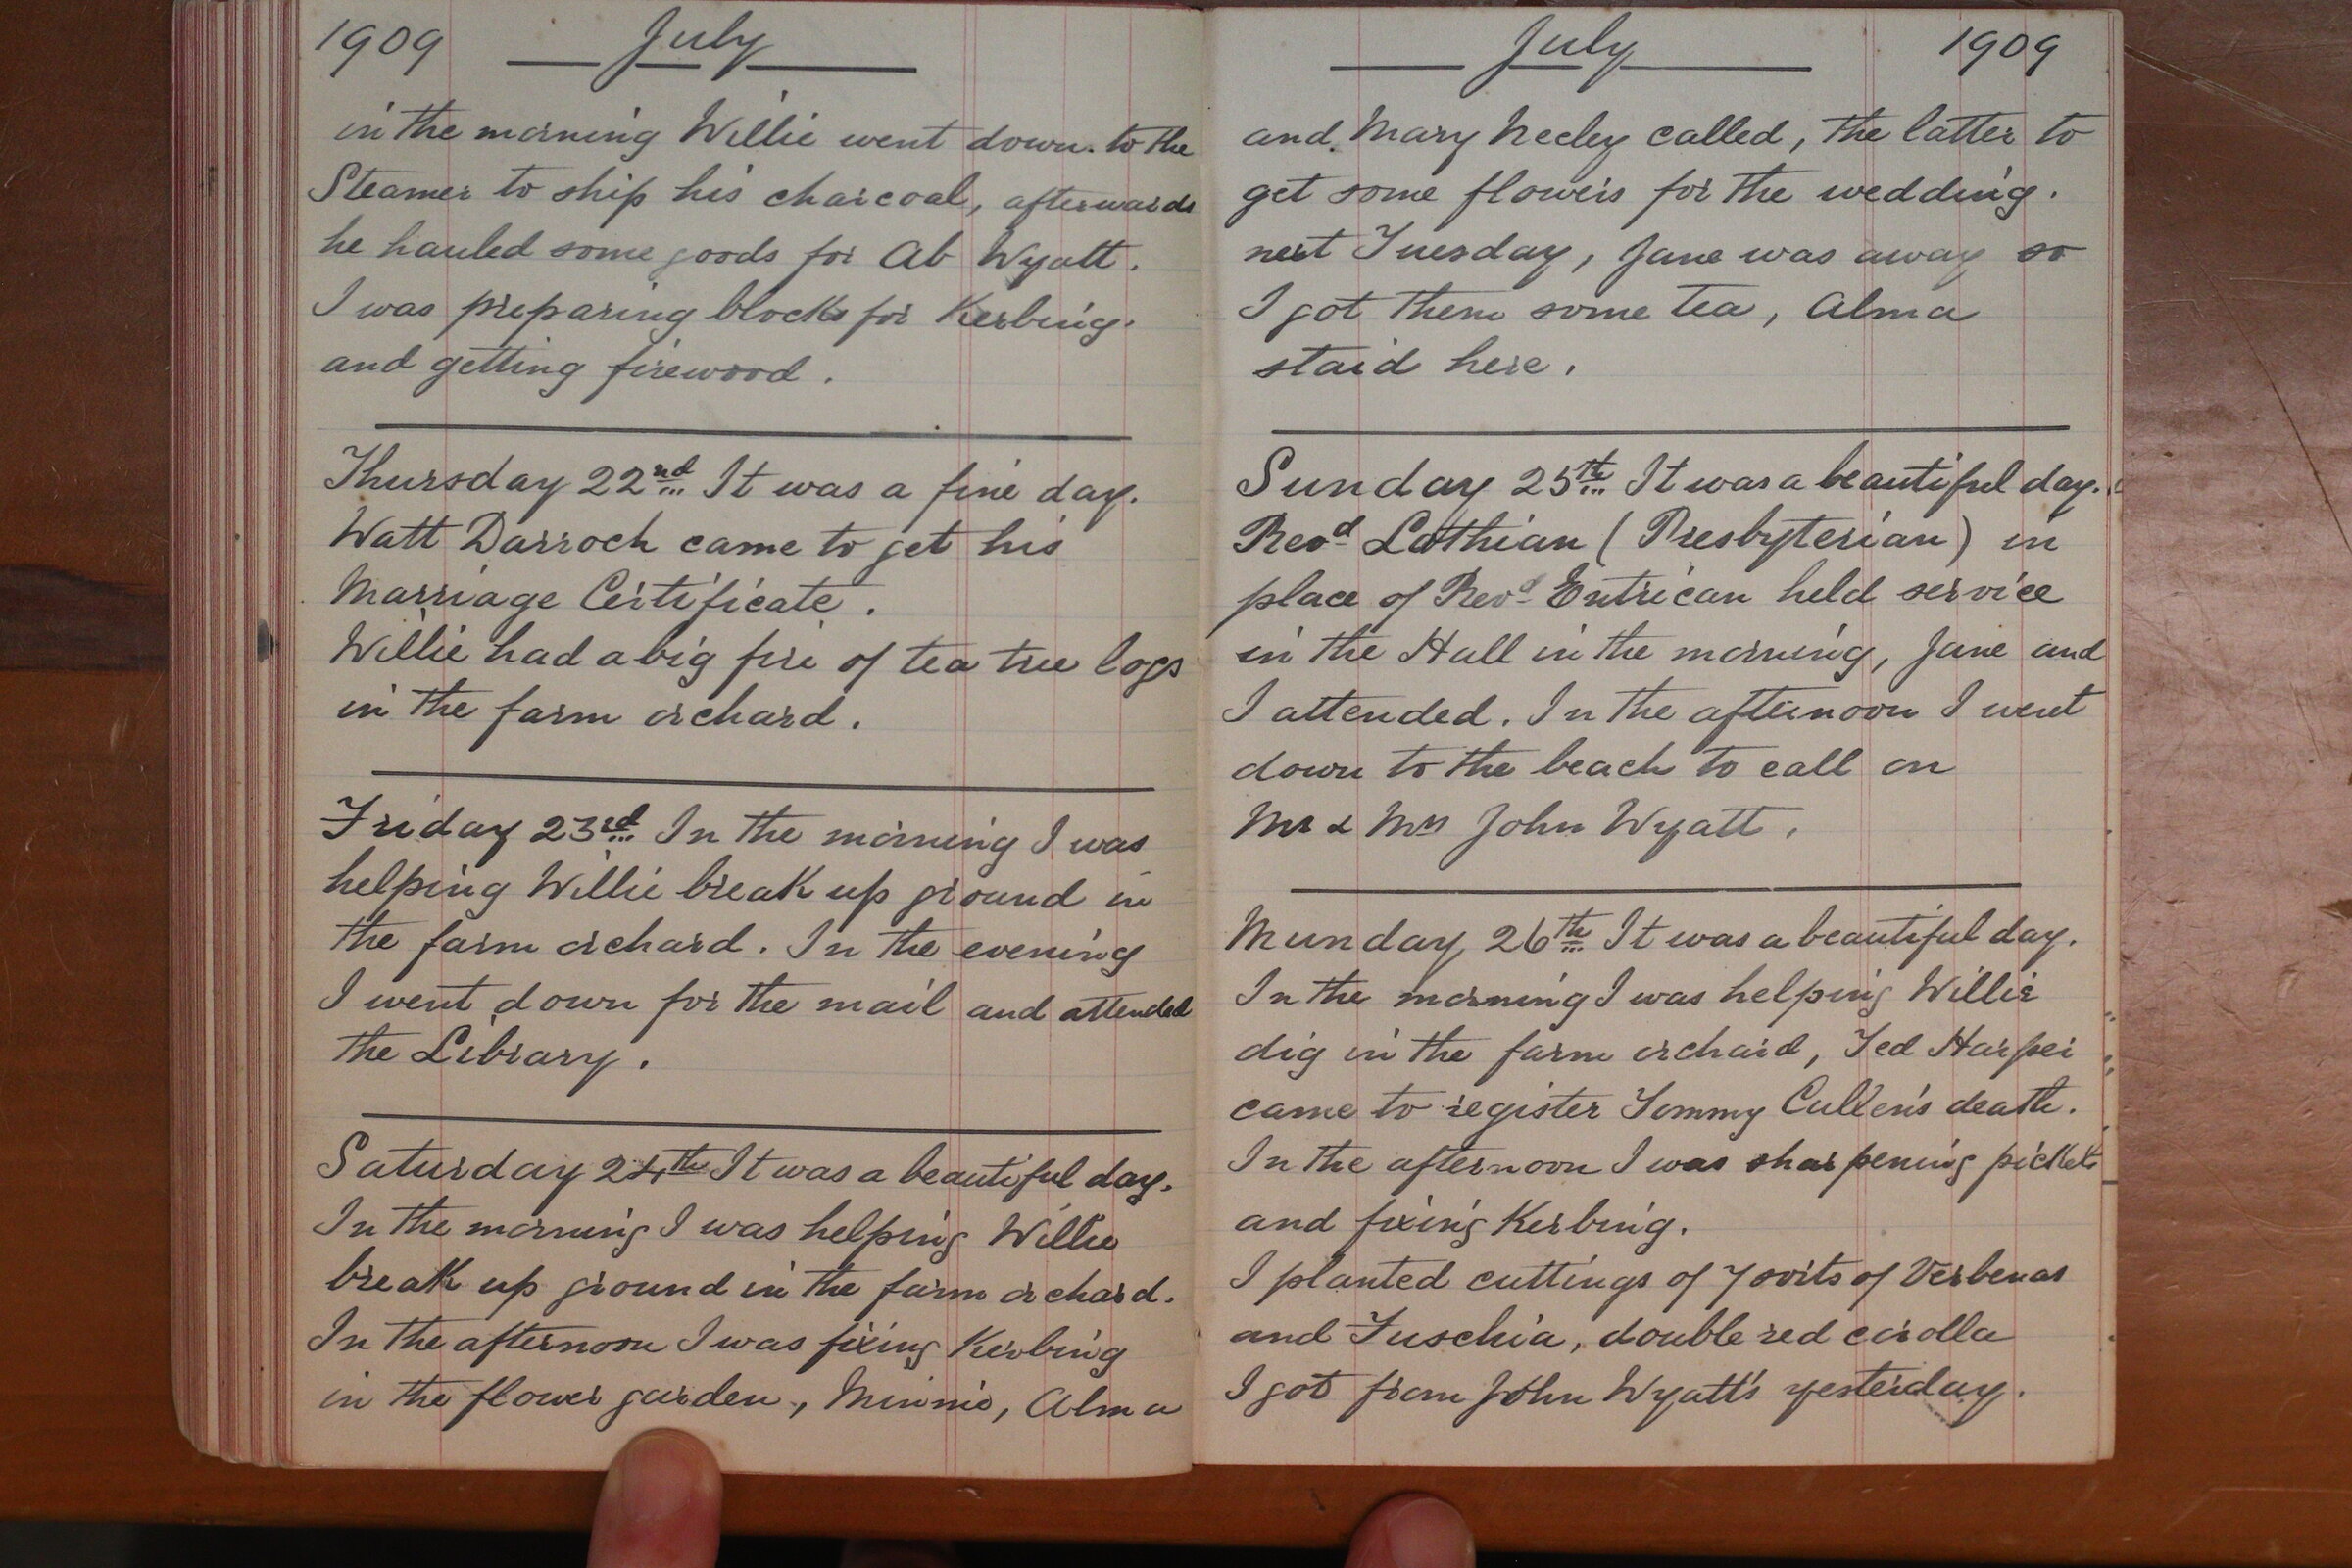 1909 July
in the morning Willie went down to the
Steamer to ship his charcoal, afterwards
he hauled some goods for Ab Wyatt.
I was preparing blocks for Kerbing.
and getting firewood.
Thursday 22nd It was a fine day.
Watt Darroch came to get his
Marriage Certificate.
Willie had a big fire of tea tree logs
in the farm orchard.
Friday 23rd In the morning I was
helping Willie break up ground in
the farm orchard. In the evening
I went down for the mail and attended
the Library.
Saturday 24th It was a beautiful day.
In the morning I was helping Willie
break up ground in the farm orchard.
In the afternoon I was fixing Kerbing
in the flower garden, Minnie, Alma
July 1909
and Mary Neeley called, the latter to
get some flowers for the wedding.
next Tuesday, Jane was away so
I got them some tea, Alma
staid here.
Sunday 25th It was a beautiful day.
Revd Lothian (Presbyterian) in
place of Revd Entrican held service
in the Hall in the morning, Jane and
I attended. In the afternoon I went
down to the beach to call on
Mr & Mrs John Wyatt.
Munday 26th It was a beautiful day.
In the morning I was helping Willie
dig in the farm orchard, Ted Harper
came to register Tommy Cullen's death.
In the afternoon I was sharpening pickets
and fixing Kerbing.
I planted cuttings of 7 sorts of Verbenas
and Fuschia, double red corolla
I got from John Wyatt's yesterday.